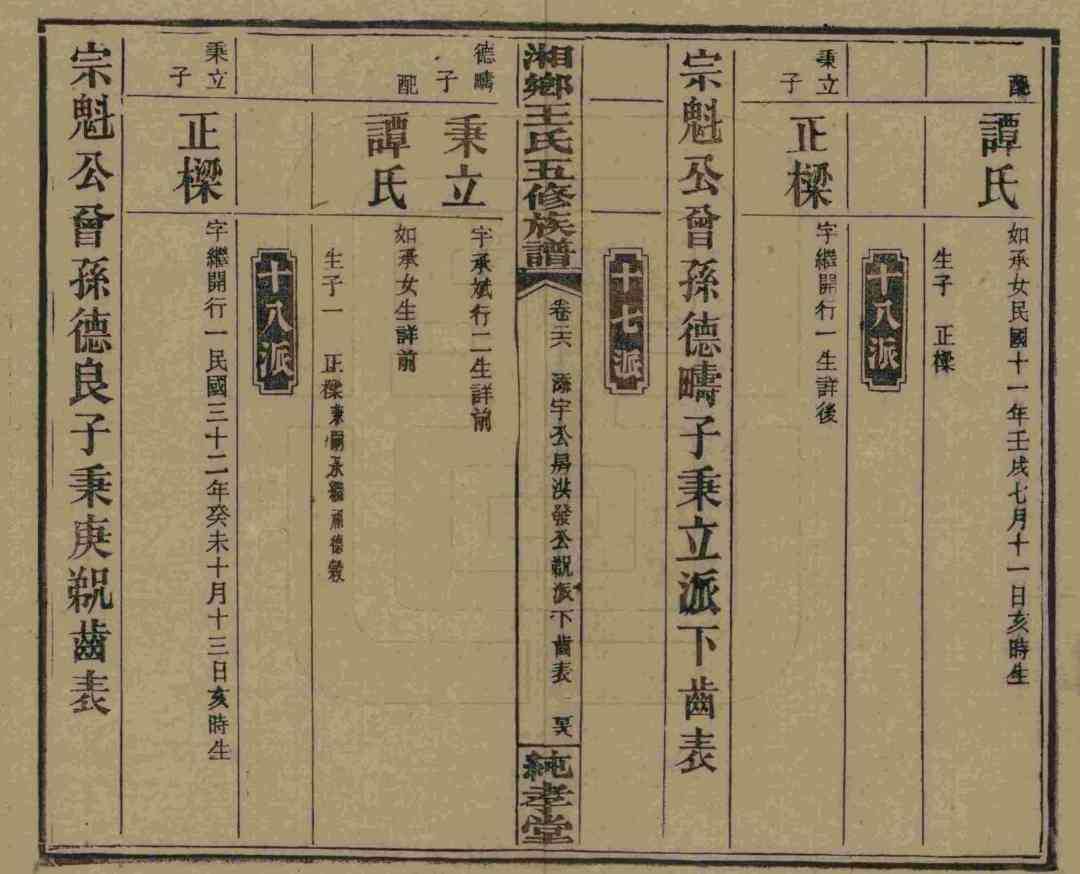 配
譚氏
如承女民國十一年壬戌七月十一日亥時生
生子 正樑
十八派
秉立子
正樑
字繼開行一生詳後
宗魁公曾孫德疇子秉立派下齒表
十七派
湘鄉王氏五修族譜
卷六 房洪發公派下齒表
純孝堂
德疇子
秉立
字承斌行二生詳前
配
譚氏
如承女生詳前
生子一 正樑兼嗣承繼
十八派
秉立子
正樑
字繼開行一民國三十二年癸未十月十三日亥時生
宗魁公曾孫德良子秉庚齒表